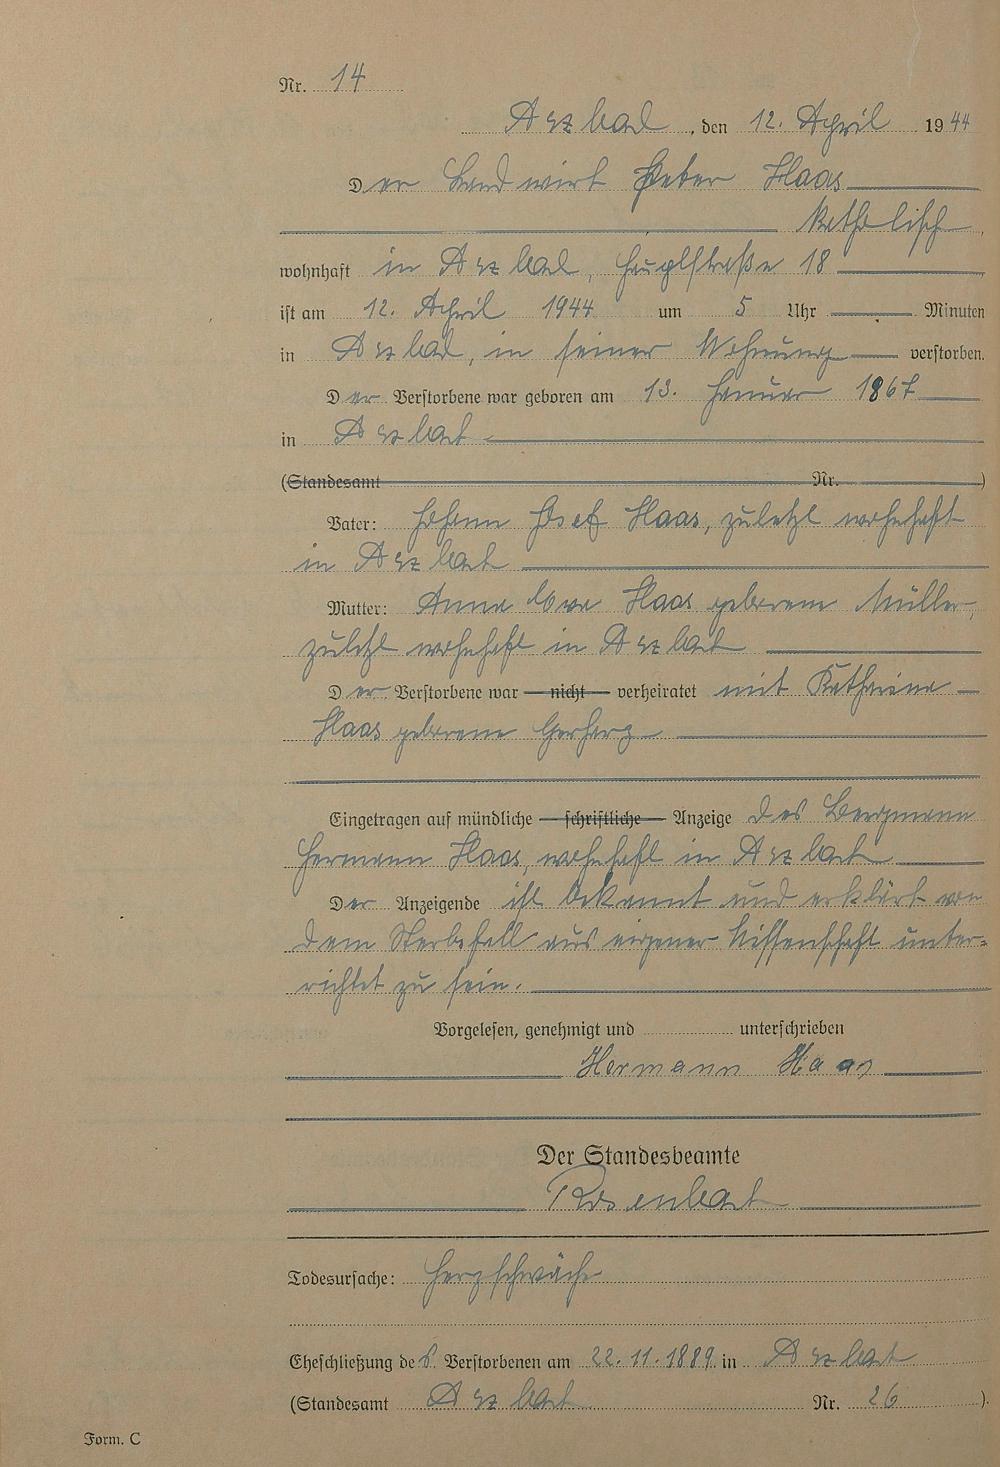 Nr. 14
Arzbach, den 12. April 1944
Der Landwirt Peter Haas
katholisch,
wohnhaft in Arzbach, Hauptstraße 18
ist am 12. April 1944 um 5 Uhr Minuten
in Arzbach, in seiner Wohnung verstorben.
Der Verstorbene war geboren am 13. Januar 1867
in Arzbach
(Standesamt Nr. )
Vater: Johann Josef Haas, zuletzt wohnhaft
in Arzbach
Mutter: Anna Haas geborene Müller,
zuletzt wohnhaft in Arzbach
Der Verstorbene war nicht verheiratet mit Katharina
Haas geborene Gerharz
Eingetragen auf mündliche schriftliche Anzeige des Bergmann
Hermann Haas, wohnhaft in Arzbach
Der Anzeigende ist bekannt und erklärt von
dem Sterbefall aus eigener Wissenschaft unter-
richtet zu sein.
Vorgelesen, genehmigt und unterschrieben
Hermann Haas
Der Standesbeamte
Rosenbach
Todesursache: Herzschwäche
Eheschließung des Verstorbenen am 22.11.1889 in Arzbach
(Standesamt Arzbach Nr. 26 ).
Form. C